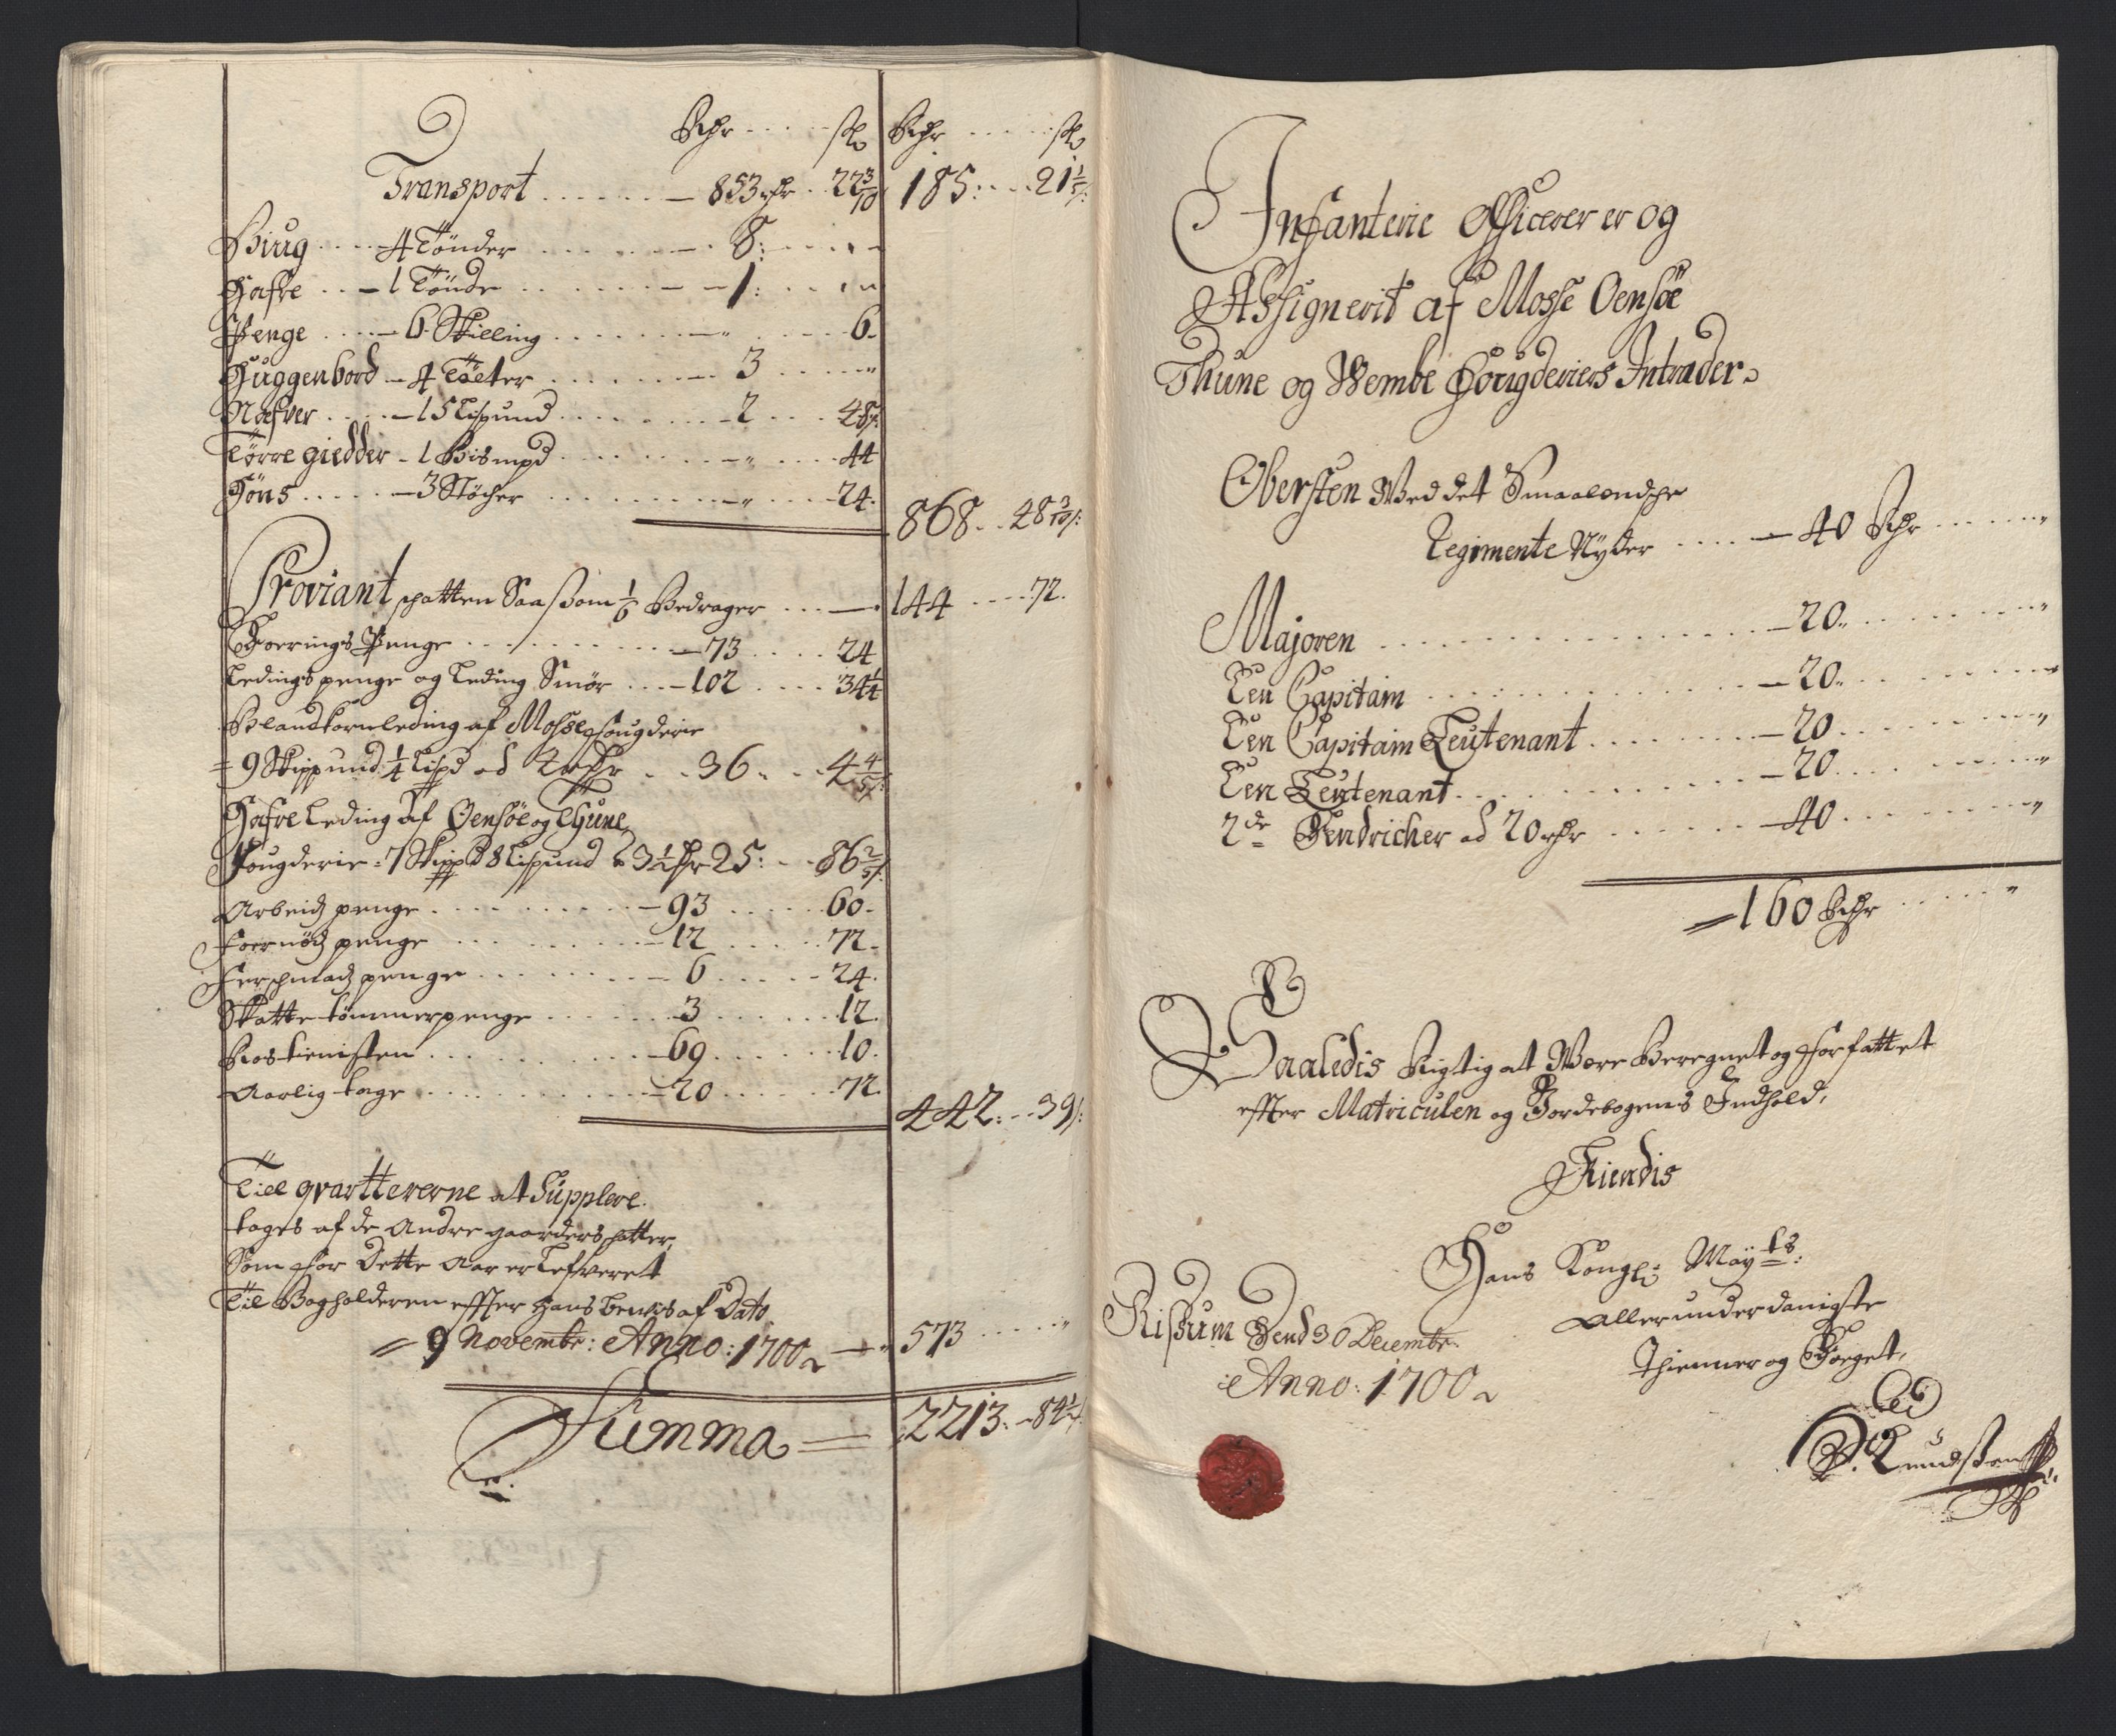 Rdr ..... sk Rdr ..... sk
Transport ...... — 853 rdr .. 22 3/10 185: ... 21 1/5
Biug .... 4 Tönder ........ 8: ....
Hafre ... — 1 Tönde ........ 1: ....
Penge .... — 6 Skilling ........ 6.
Huggenbord — 4 Tölter ........ 3 ....
Næfver .... — 15 Lispund ........ 2 ... 48
Törre giedder — 1 Bismpd ........ 44
Höns ...... — 3 Stöcher ........ 24.
868 .. 28 3/10
Proviant schatten Saasom 1/6 Bedrager .... — 144 .... 72.
Foerings Penge ........ — 73 .... 24
Ledings penge og Leding Smör .... — 102 .... 34 1/4
Blandkornleding af Mosse fougderie
= 9 Skippund 1/4 Lispd ad 2 rdr ... 36 ... 4 4/5
Hafre Leding af Oensöe og Thune
fougderie = 7 Skippd 8 Lispund a 3 1/2 rdr 25: .. 86 2/5
Arbeids penge ........ — 93 ..... 60.
Foernöds penge ........ — 12 ..... 72.
Ferschmads penge ........ — 6 ..... 24.
Skatte tömmerpenge ........ 3 ..... 12.
Rostienisten ........ — 69 ..... 10.
Aarlig tage ........ — 20 ..... 72.
442: .. 39
Till qvartterne at Supplere
tages af de Andre gaarders schatter,
Som for Dette Aar er Lefveret
Til Bogholderen effter Hans beviis af Dato
= 9 Novembr: Anno: 1700 — 573 ..... "
Summa = 2213: — 84
Infanterie Officerer er og
Assignerit af Mosse Oensöe
Thune og Wembe fougderiers Intrader.
Obersten Wed det Smaalendsche
Regimente Nyder ..... — 40 Rdr ...... "
Majoren ........ — 20. ...... "
Een Capitain ........ — 20. ...... "
Een Capitain Leutenant ........ — 20 ...... "
Een Leutenant ........ — 20 ...... "
2de Fendricher ad 20 rdr ...... — 40 ...... "
= 160 Rdr .... "
Saaledis Rigtig at Were Beregnet og forfattet
effter Matriculen og Jordebogens Indhold,
Kiendis
Hans Kongl: Mayts:
Allerunderdanigste
Thienner og Foeget,
Rissum Dend 30 Decembr.
Anno: 1700
Knudssen